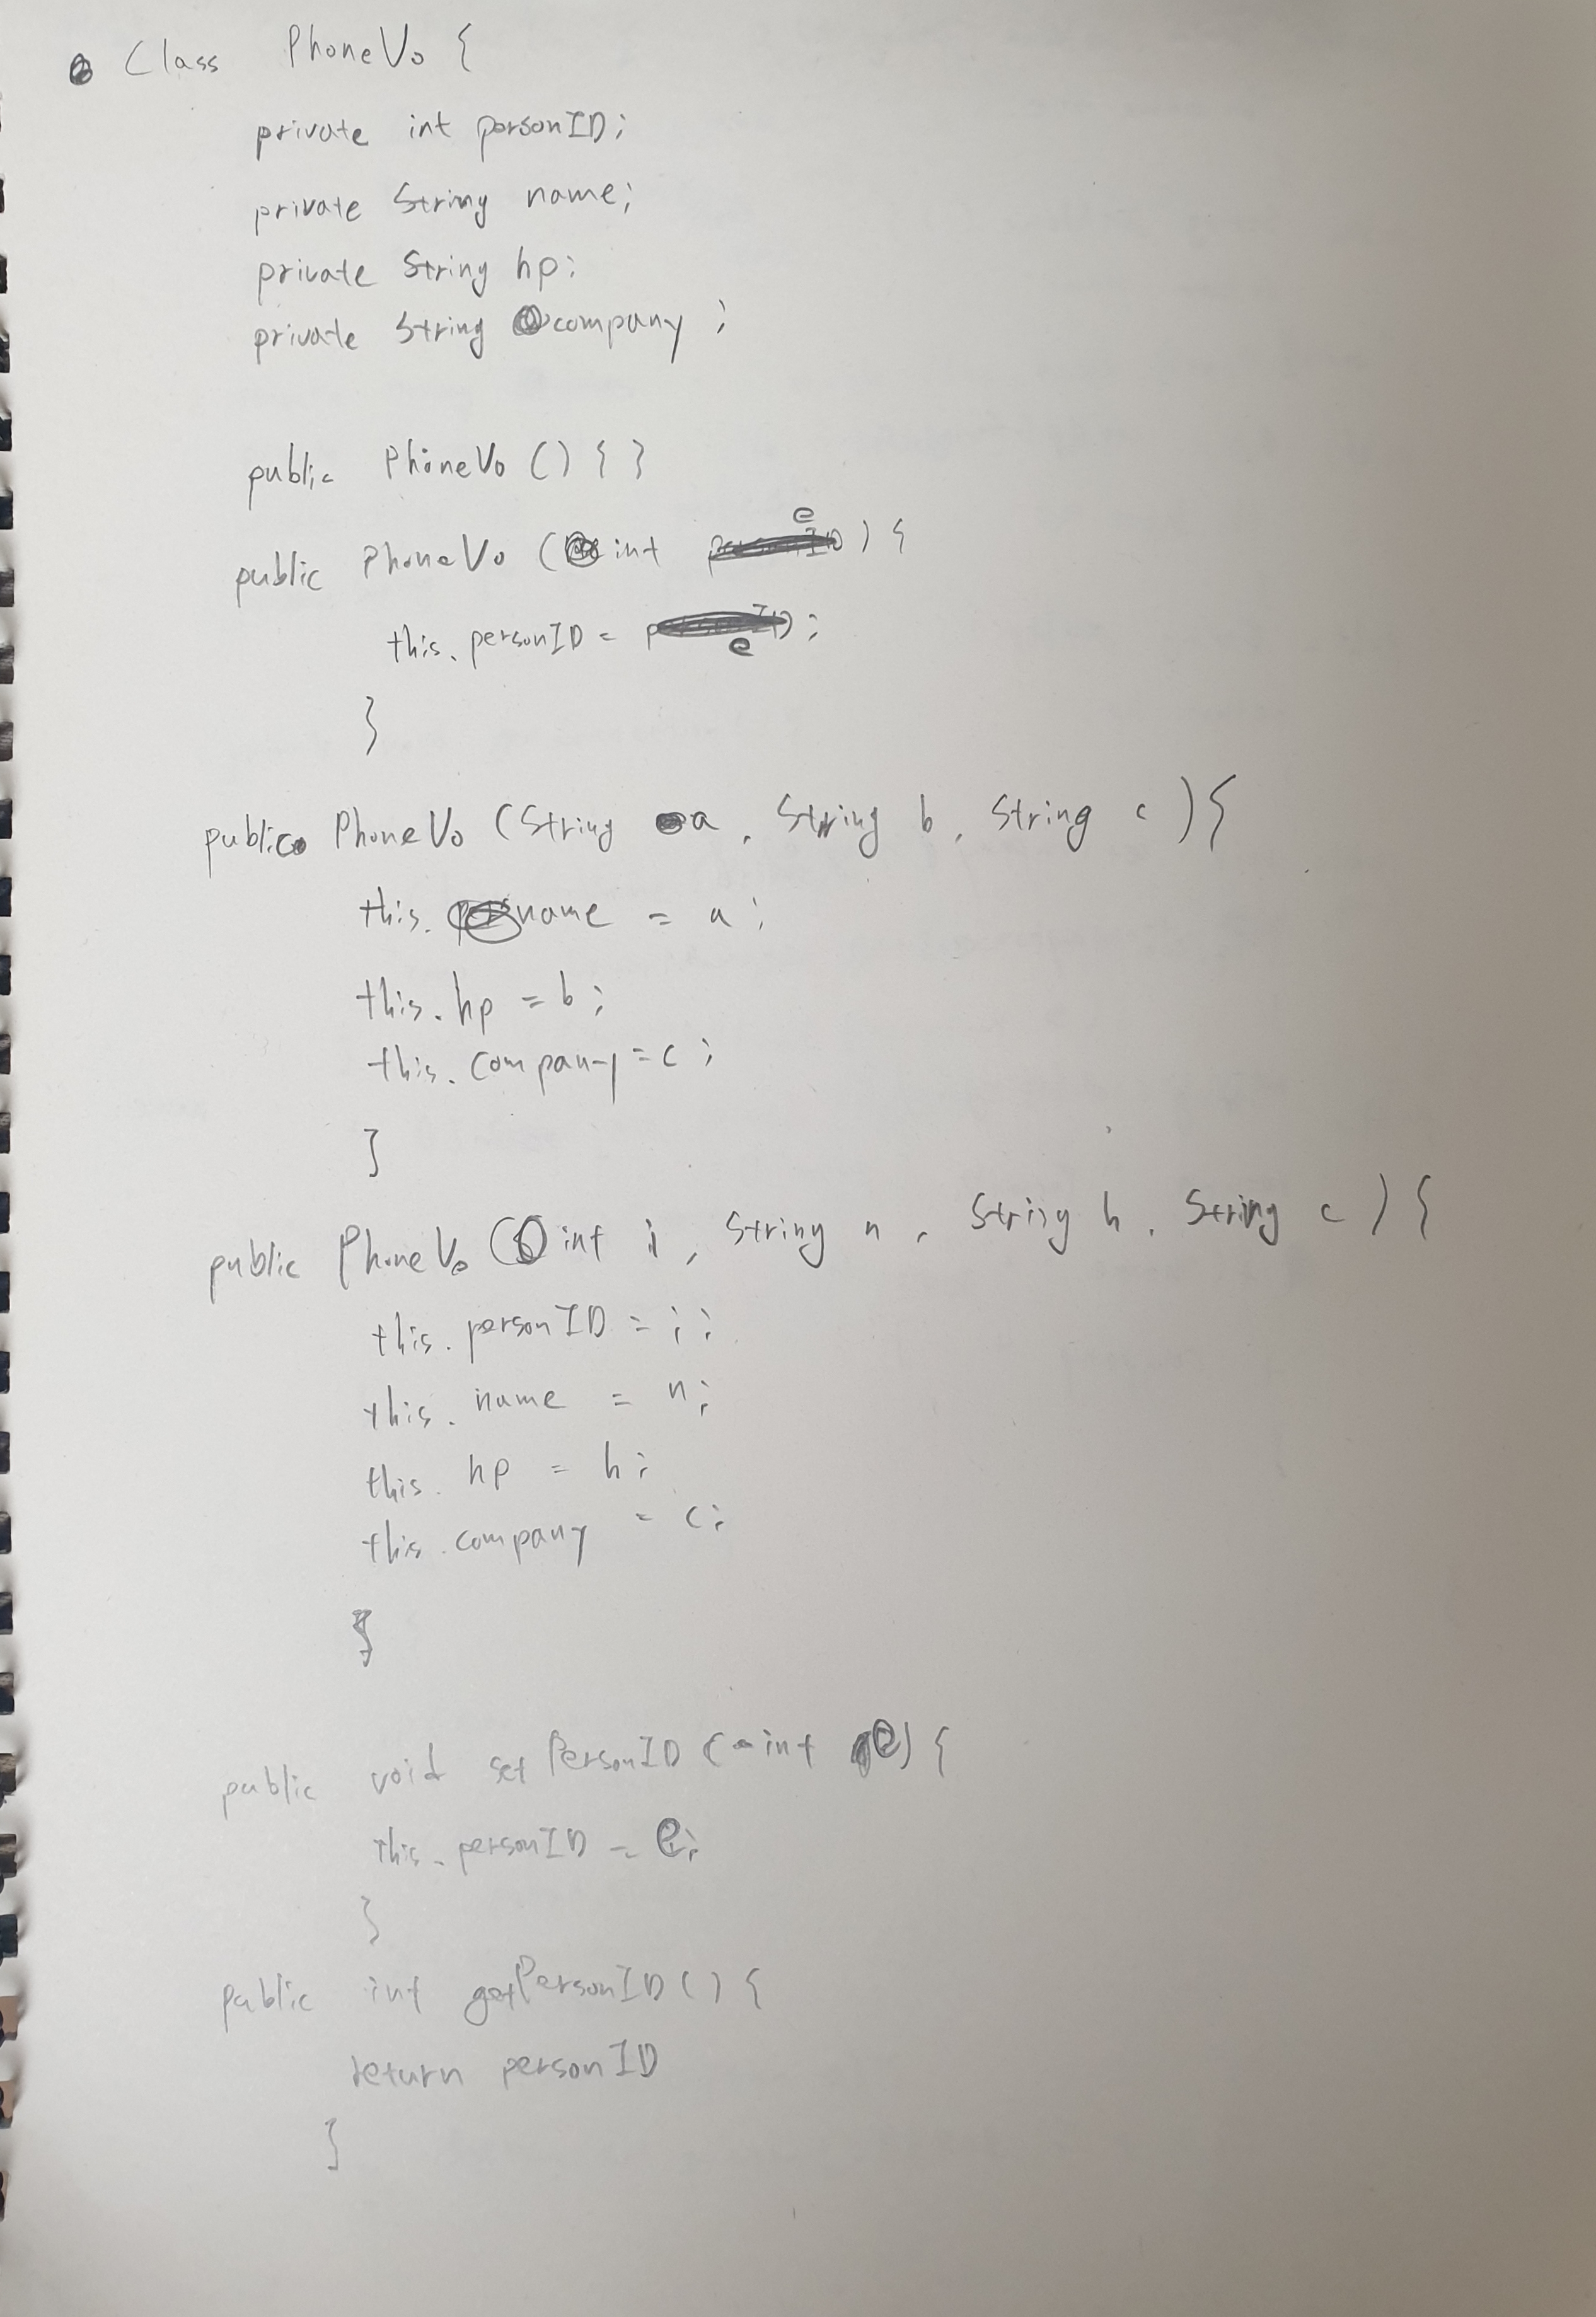 Class PhoneVo {
private int personID;
private String name;
private String hp;
private String company ;
public PhoneVo () { }
public PhoneVo ( int e ) {
this. personID = e ;
}
public PhoneVo (String a , String b , String c ) {
this. name = a ;
this. hp = b ;
this. company = c ;
}
public PhoneVo ( int i , String n , String h , String c ) {
this. personID = i ;
this. name = n ;
this. hp = h ;
this. company = c ;
}
public void setPersonID ( int e) {
this. personID = e;
}
public int getPersonID () {
return personID
}